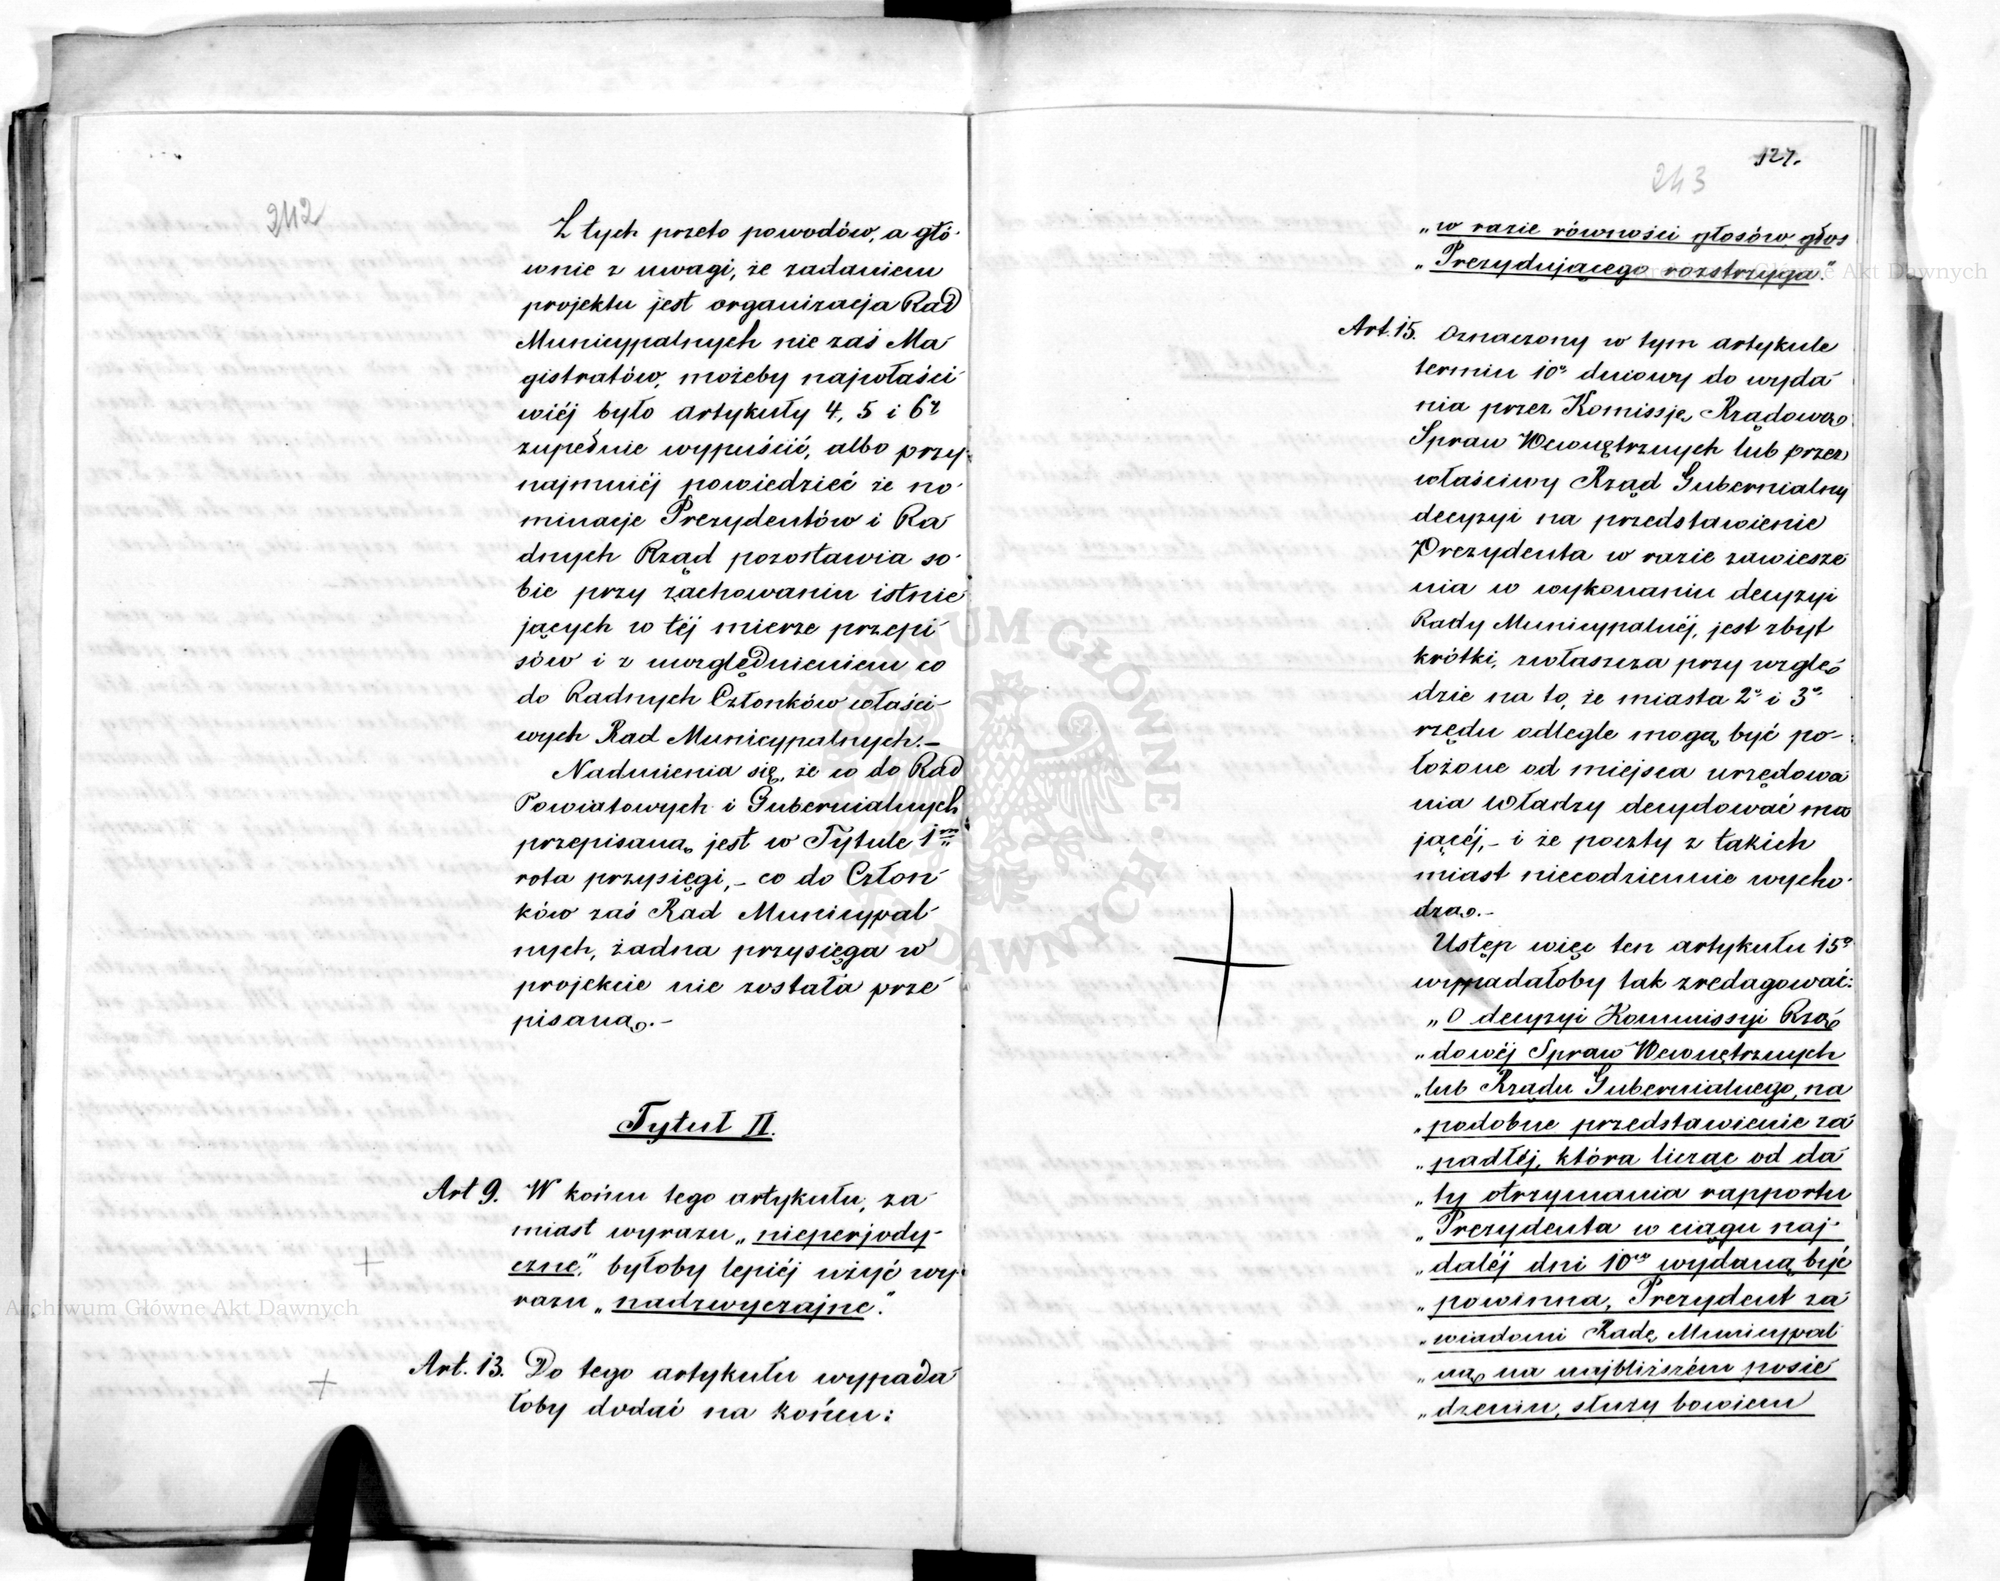 242
Z tych przeto powodów, a głó-
wnie z uwagi, że zadaniem
projektu jest organizacja Rad
Municypalnych nie zaś Ma-
gistratów, możeby najwłaści-
wiéj było artykuły 4, 5 i 6ty
zupełnie wypuścić, albo przy-
najmniéj powiedzieć że no-
minacje Prezydentów i Ra-
dnych Rząd pozostawia so-
bie przy zachowaniu istnie-
jących w téj mierze przepi-
sów i z uwzględnieniem co
do Radnych Członków właści-
wych Rad Municypalnych.—
Nadmienia się, że co do Rad
Powiatowych i Gubernialnych
przepisaną jest w Tytule 1m
rota przysięgi,- co do Człon-
ków zaś Rad Municypal-
nych, żadna przysięga w
projekcie nie została prze-
pisaną.-
Tytuł II.
Art 9. W końcu tego artykułu, za-
miast wyrazu „nieperjody-
czne," byłoby lepiéj użyć wy-
razu „nadzwyczajne".
Art. 13. Do tego artykułu wypada-
łoby dodać na końcu:
127.
243
„w razie równości głosów głos
„Prezydującego rozstrzyga".
Art. 15. Oznaczony w tym artykule
termin 10o dniowy do wyda-
nia przez Komissję Rządową
Spraw Wewnętrznych lub przez
właściwy Rząd Gubernialny
decyzyi na przedstawienie
Prezydenta w razie zawiesze-
nia w wykonaniu decyzyi
Rady Municypalnéj, jest zbyt
krótki, zwłaszcza przy wzglę-
dzie na to, że miasta 2o i 3o
rzędu odległe mogą być po-
łożone od miejsca urzędowa-
nia Władzy decydować ma-
jącéj,- i że poczty z takich
miast niecodziennie wycho-
dzą.-
Ustęp więc ten artykułu 15o
wypadałoby tak zredagować:
„O decyzyi Kommissyi Rzą-
„dowéj Spraw Wewnętrznych
„lub Rządu Gubernialnego, na
„podobne przedstawienie za-
„padłéj, która licząc od da-
„ty otrzymania rapportu
„Prezydenta w ciągu naj-
„daléj dni 10ciu wydaną być
„powinna, Prezydent za-
„wiadomi Radę Municypal-
„ną na najbliższém posie-
„dzeniu, służy bowiem
Archiwum Główne Akt Dawnych
Archiwum Główne Akt Dawnych
ARCHIWUM GŁÓWNE AKT DAWNYCH